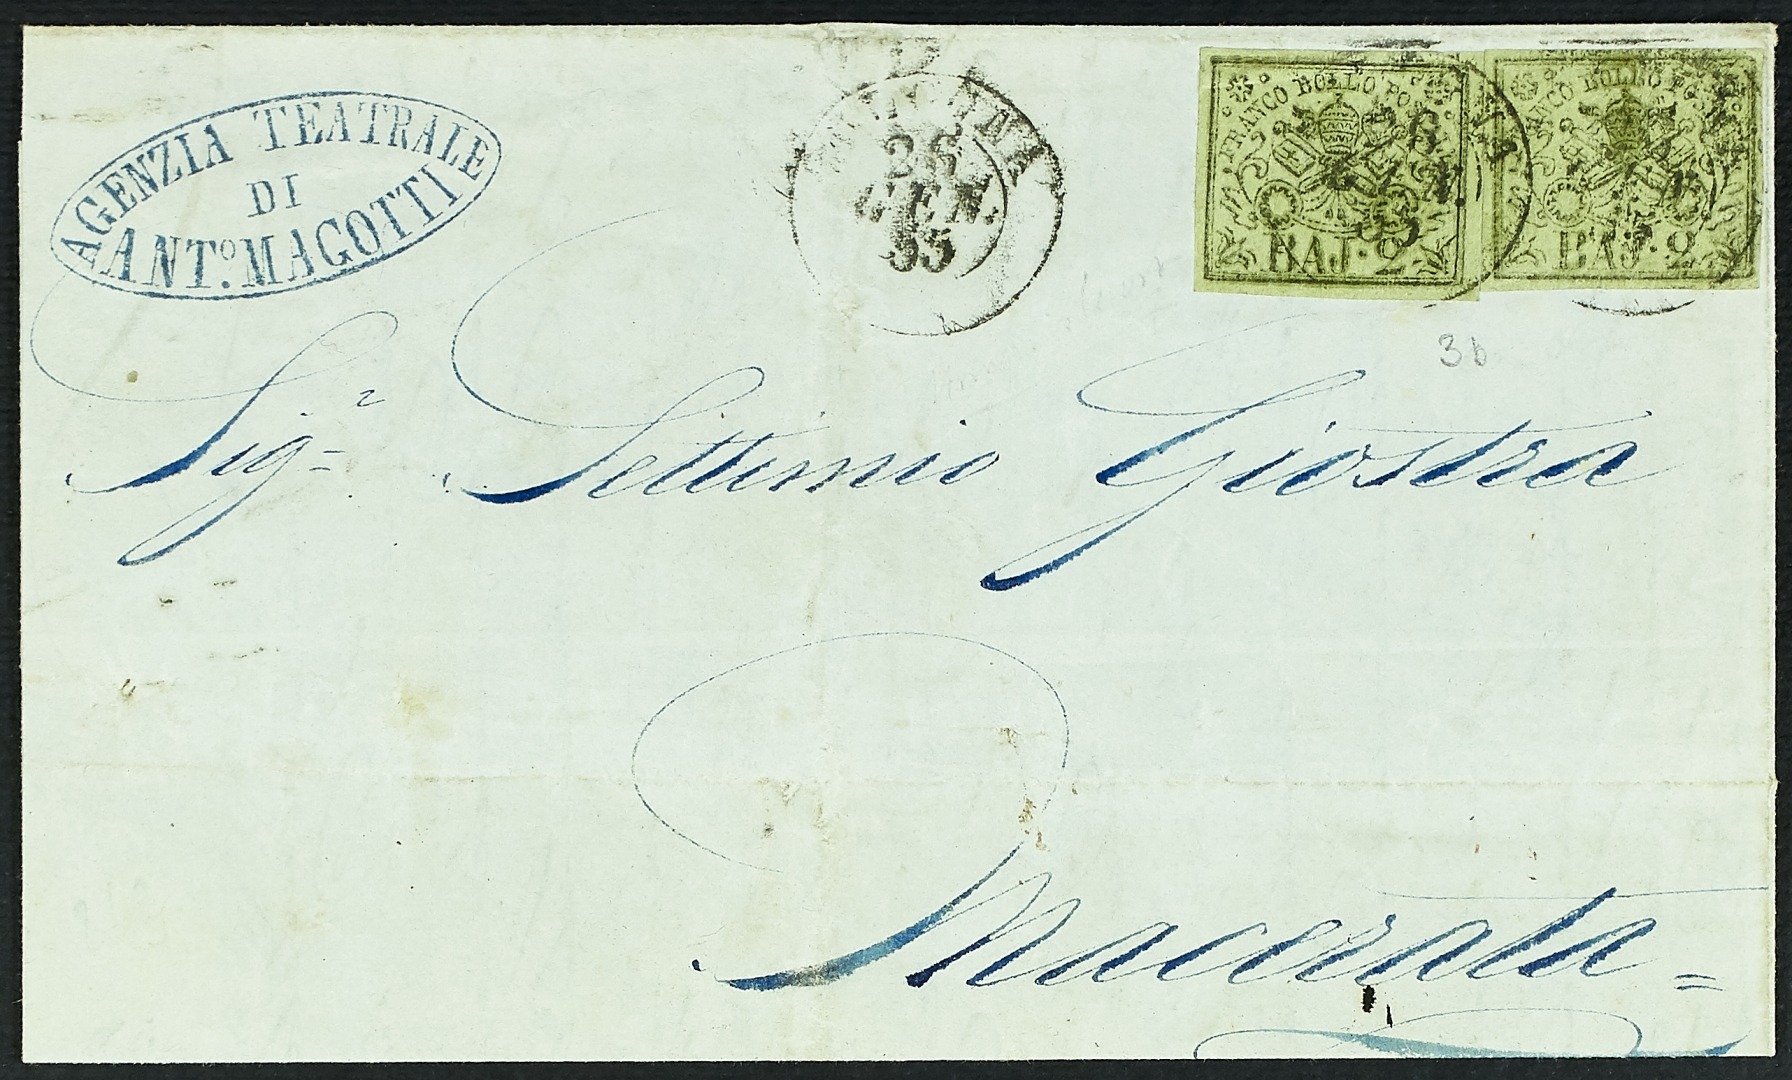 AGENZIA TEATRALE
DI
ANT.º MAGOTTI
BOLOGNA
26
GEN.
55
FRANCO BOLLO POSTALE
BAJ. 2
FRANCO BOLLO POSTALE
BAJ. 2
3b
Sigr. Settimio Giostra
Macerata =